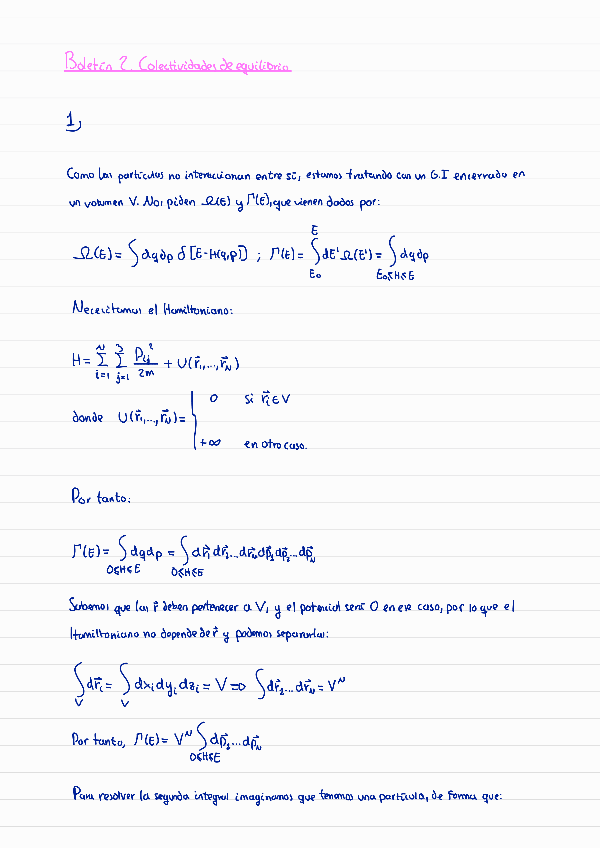 Boletín 2. Colectividades de equilibrio
1)
Como las partículas no interaccionan entre sí, estamos tratando con un G.I encerrado en
un volumen V. Nos piden Ω(E) y Γ(E), que vienen dados por:
Ω(E) = ∫ dq dp δ [E - H(q,p)] ; Γ(E) = ∫_{E₀}^{E} dE' Ω(E') = ∫_{E₀≤H≤E} dq dp
Necesitamos el Hamiltoniano:
H = Σ_{i=1}^{N} Σ_{j=1}^{3} p_{ij}²/2m + U(r⃗₁,...,r⃗_N)
donde U(r⃗₁,...,r⃗_N) = { 0 si r⃗ᵢ ∈ V
+∞ en otro caso.
Por tanto:
Γ(E) = ∫_{0≤H≤E} dq dp = ∫_{0≤H≤E} dr⃗₁ dr⃗₂...dr⃗_N dp⃗₁ dp⃗₂...dp⃗_N
Sabemos que las r⃗ deben pertenecer a V, y el potencial será 0 en ese caso, por lo que el
Hamiltoniano no depende de r⃗ y podemos separarlas:
∫_V dr⃗ᵢ = ∫_V dxᵢ dyᵢ dzᵢ = V ⇒ ∫ dr⃗₁...dr⃗_N = V^N
Por tanto, Γ(E) = V^N ∫_{0≤H≤E} dp⃗₁...dp⃗_N
Para resolver la segunda integral imaginamos que tenemos una partícula, de forma que: